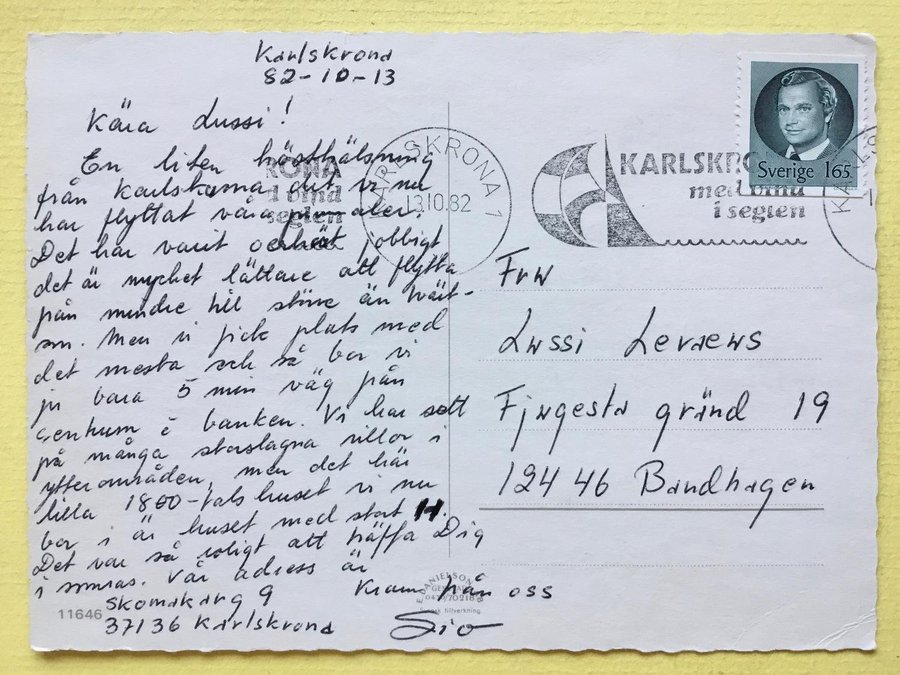 Karlskrona
82-10-13
Kära Lussi!
En liten hösthälsning
från Karlskrona, det vi nu
har flyttat våra
Det har varit jobbigt
det är mycket lättare att flytta
från mindre till större än tvärt-
om. Men vi fick plats med
det mesta och så bor vi
ju bara 5 min väg från
centrum o banken. Vi har sett
på många storslagna villor i
ytterområden, men det här
lilla 1800-talshuset vi nu
bor i är huset med stort H.
Det var så roligt att träffa Dig
i somras. Vår adress är
Skomakarg 9
37136 Karlskrona
Kram från oss
Siv
11646
E. DANIELSON
Svensk tillverkning
KRONA
d vind
seglen
KARLSKRONA 1
13.10.82
KARLSKRO
med vind
i seglen
Sverige 165
Fru
Lussi Levaeus
Fjugesta gränd 19
124 46 Bandhagen